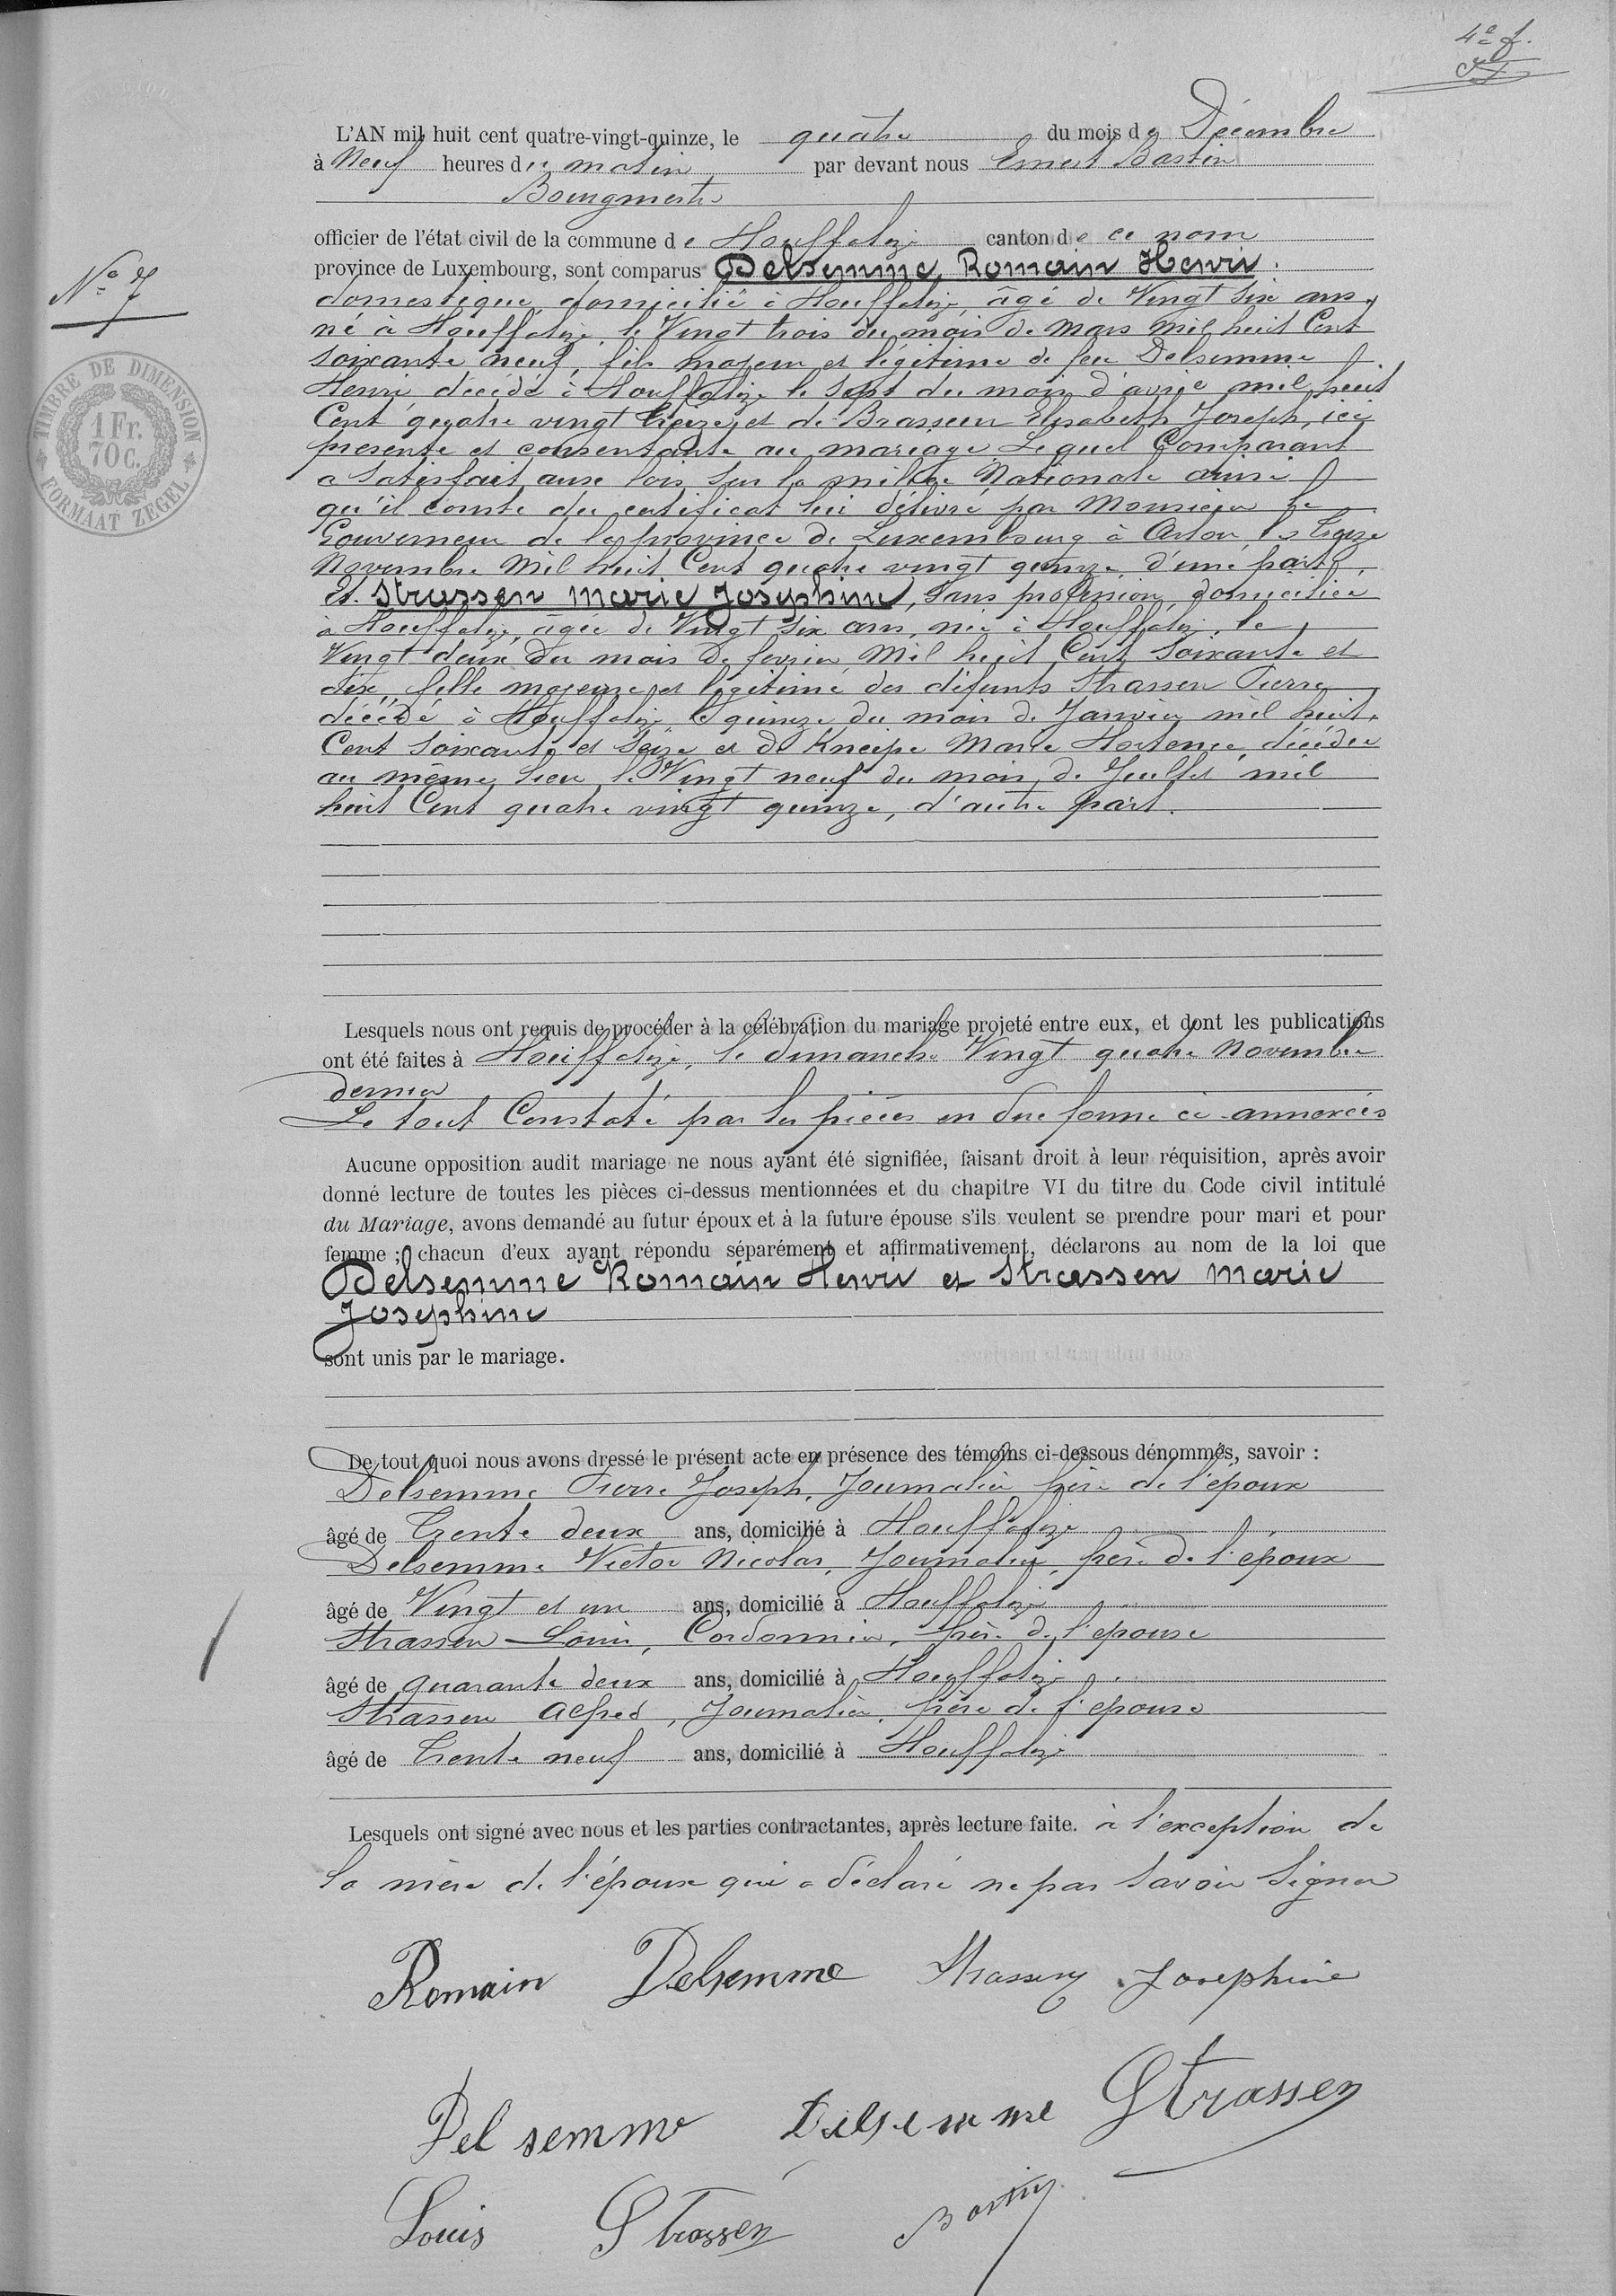 4e f.
L'AN mil huit cent quatre-vingt-quinze, le quatre du mois de Décembre
à Neuf heures du matin par devant nous Ernest Bastin
Bourgmestre
officier de l'état civil de la commune de Houffalize canton de ce nom
province de Luxembourg, sont comparus Delsemme, Romain Henri.
N° 7
domestique, domicilié à Houffalize, âgé de Vingt six ans,
né à Houffalize, le Vingt trois du mois de Mars Mil huit Cent
soixante neuf, fils majeur et légitime de feu Delsemme
Henri, décédé à Houffalize le sept du mois d'avril mil huit
Cent quatre vingt treize, et de Brasseur Elisabeth Joseph, ici
présente et consentante au mariage. Lequel Comparant
a satisfait aux lois sur la milice Nationale ainsi
qu'il conste du certificat lui délivré par Monsieur le
Gouverneur de la province de Luxembourg à Arlon, le treize
Novembre Mil huit Cent quatre vingt quinze, d'une part,
Et Strassen Marie Josephine, sans profession, domiciliée
à Houffalize, âgée de Vingt six ans, née à Houffalize, le
Vingt deux du mois de fevrier Mil huit Cent soixante et
dix, fille majeure et légitime des défunts Strassen Pierre
décédé à Houffalize le quinze du mois de Janvier mil huit
Cent soixante et seize et de Kneipe Marie Hortence, décédée
au même lieu, le Vingt neuf du mois de Juillet mil
huit Cent quatre vingt quinze, d'autre part.
TIMBRE DE DIMENSION
1 Fr.
70 C.
FORMAAT ZEGEL
Lesquels nous ont requis de procéder à la célébration du mariage projeté entre eux, et dont les publications
ont été faites à Houffalize, le dimanche Vingt quatre Novembre
dernier
Le tout Constaté par les pièces en due forme ci-annexées
Aucune opposition audit mariage ne nous ayant été signifiée, faisant droit à leur réquisition, après avoir
donné lecture de toutes les pièces ci-dessus mentionnées et du chapitre VI du titre du Code civil intitulé
du Mariage, avons demandé au futur époux et à la future épouse s'ils veulent se prendre pour mari et pour
femme ; chacun d'eux ayant répondu séparément et affirmativement, déclarons au nom de la loi que
Delsemme Romain Henri et Strassen Marie
Josephine
sont unis par le mariage.
De tout quoi nous avons dressé le présent acte en présence des témoins ci-dessous dénommés, savoir :
Delsemme Pierre Joseph, Journalier frère de l'époux
âgé de Trente deux ans, domicilié à Houffalize
Delsemme Victor Nicolas, Journalier, frère de l'époux
âgé de Vingt et un ans, domicilié à Houffalize
Strassen Louis, Cordonnier, frère de l'epouse
âgé de quarante deux ans, domicilié à Houffalize
Strassen Alfred, Journalier, frère de l'epouse
âgé de Trente neuf ans, domicilié à Houffalize
Lesquels ont signé avec nous et les parties contractantes, après lecture faite. à l'exception de
la mère de l'époux qui a déclaré ne pas savoir signer
Romain Delsemme Strassen Josephine
Delsemme Delsemme Strassen
Louis Strassen Bastin